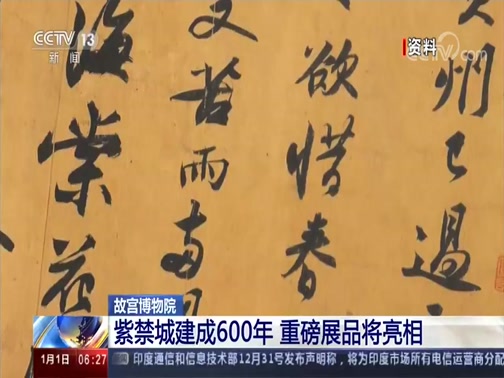 CCTV 13
新闻
资料
CCTV.com
州已過
欲惜春
又苦雨兩月
海棠花
故宫博物院
紫禁城建成600年 重磅展品将亮相
1月1日 06:27 印度通信和信息技术部12月31号发布声明称，将为印度市场所有电信运营商分配